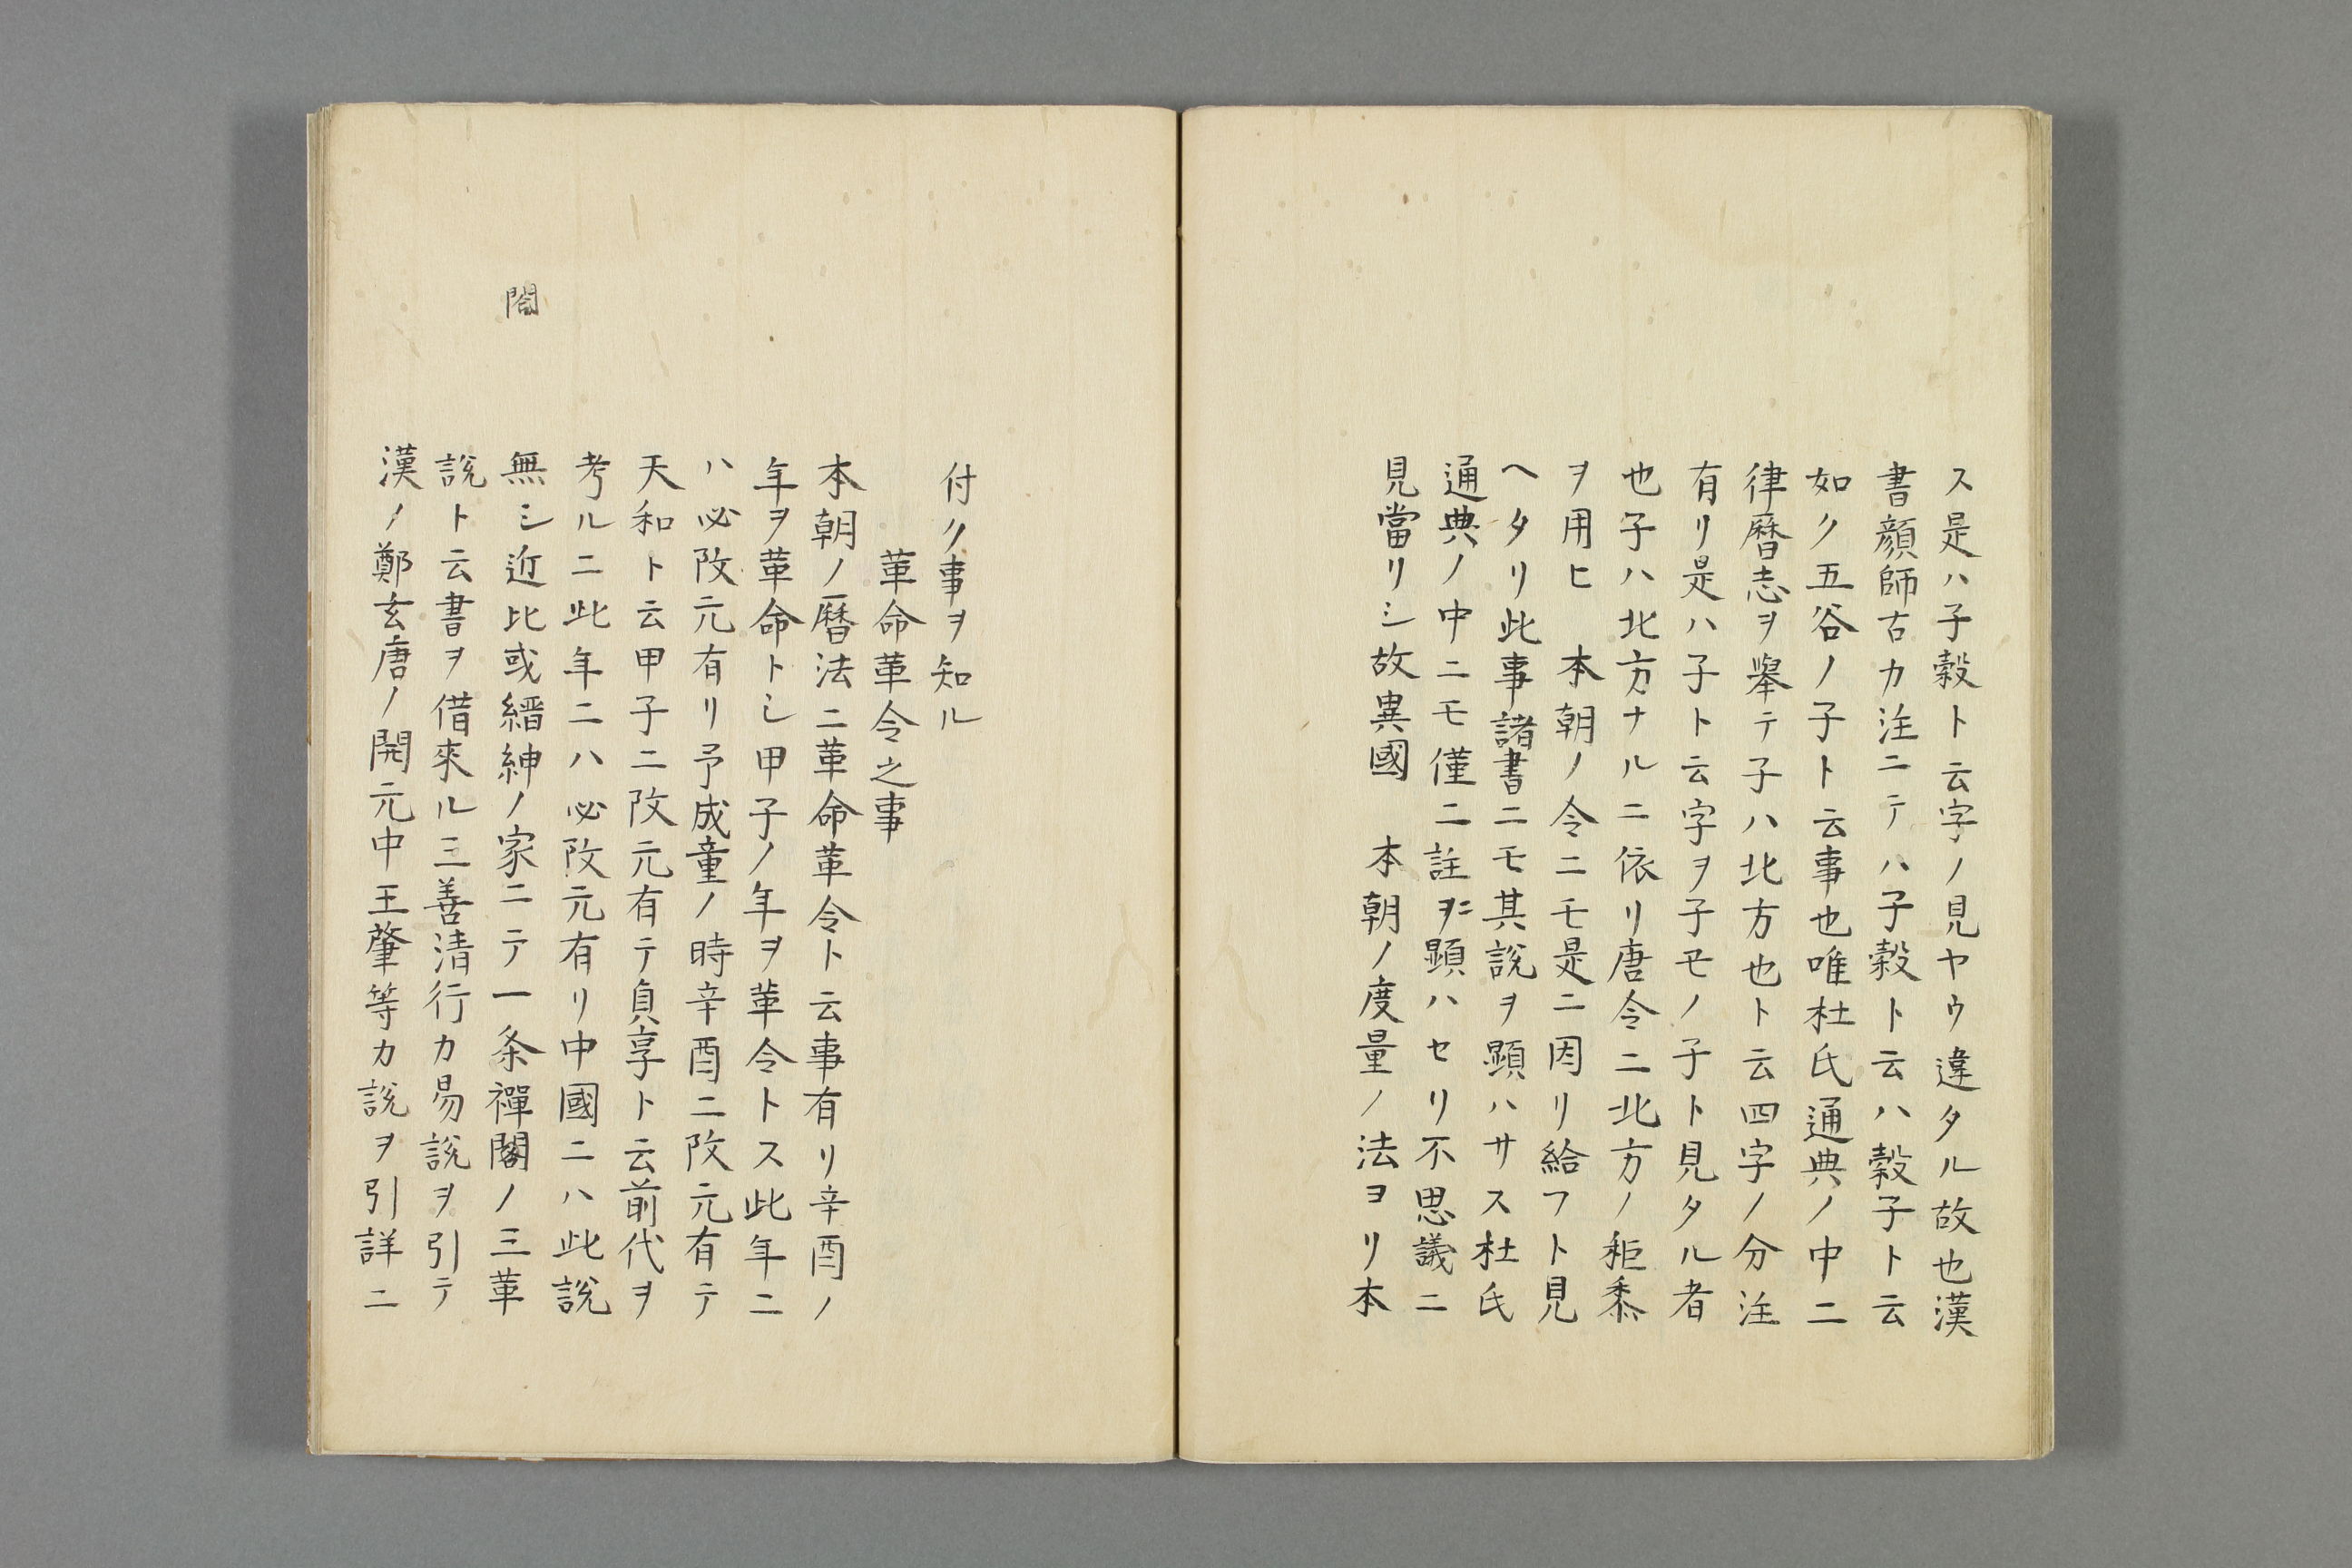 ス是ハ子穀ト云字ノ見ヤウ違タル故也漢
書顔師古カ注ニテハ子穀ト云ハ穀子ト云
如ク五谷ノ子ト云事也唯杜氏通典ノ中ニ
律暦志ヲ擧テ子ハ北方也ト云四字ノ分注
有リ是ハ子ト云字ヲ子モノ子ト見タル者
也子ハ北方ナルニ依リ唐令ニ北方ノ秬黍
ヲ用ヒ　本朝ノ令ニモ是ニ因リ給フト見
ヘタリ此事諸書ニモ其説ヲ顕ハサス杜氏
通典ノ中ニモ僅ニ註ヲ顕ハセリ不思議ニ
見當リシ故異國　本朝ノ度量ノ法ヨリ本
付ク事ヲ知ル
革命革令之事
本朝ノ暦法ニ革命革令ト云事有リ辛酉ノ
年ヲ革命トシ甲子ノ年ヲ革令トス此年ニ
ハ必改元有リ予成童ノ時辛酉ニ改元有テ
天和ト云甲子ニ改元有テ貞享ト云前代ヲ
考ルニ此年ニハ必改元有リ中國ニハ此説
無シ近比或縉紳ノ家ニテ一条禪閤ノ三革
説ト云書ヲ借來ル三善清行カ易説ヲ引テ
漢ノ鄭玄唐ノ開元中王肇等カ説ヲ引詳ニ
閤